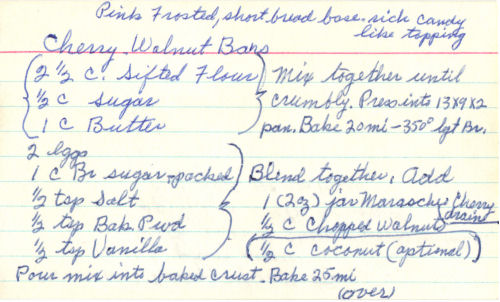 Pink Frosted, short bread base. rich candy
like topping
Cherry Walnut Bars
2 1/2 c. Sifted Flour
1/2 c Sugar
1 c Butter
Mix together until
crumbly. Press into 13x9x2
pan. Bake 20 mi - 350° lgt Br.
2 Eggs
1 c Br sugar - packed
1/2 tsp Salt
1/2 tsp Bak. Pwd
1/2 tsp Vanilla
Blend together, Add
1 (2 oz) jar Maraschy Cherry
drain
1/2 c Chopped Walnuts
(1/2 c coconut (optional))
Pour mix into baked crust. Bake 25 mi
(over)